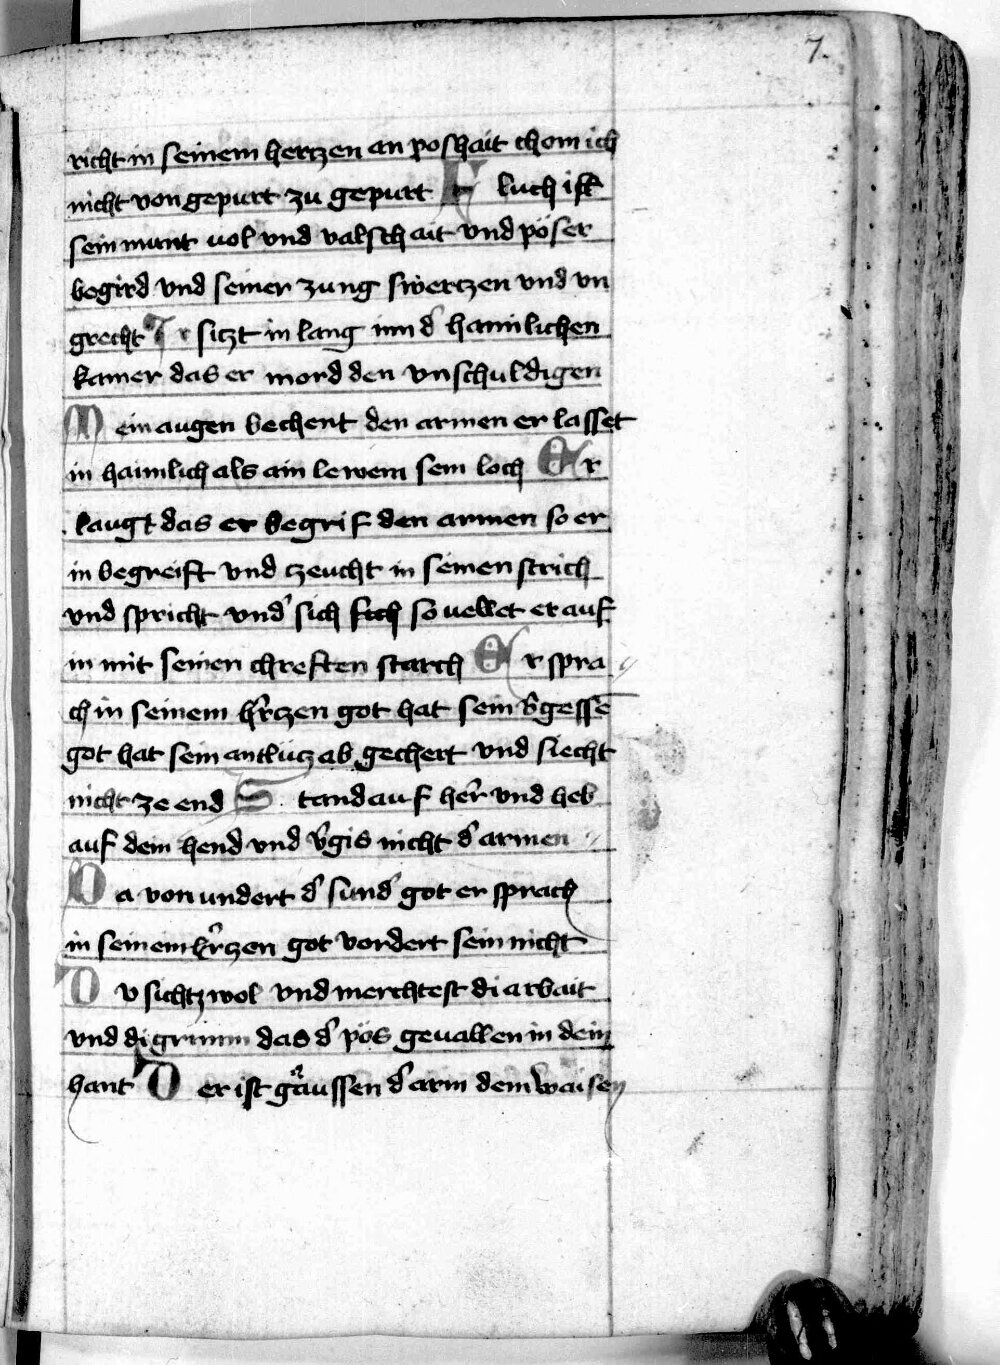 7.
richt in seinem hertzen an poshait chom ich
nicht von gepurt zu gepurt Fluch ist
sein munt vol vnd valschait vnd pöser
begird vnd seiner zung swertzen vnd vn
grecht Er sitzt in lang inn d' haimlichen
kamer das er mord den vnschuldigen
Mein augen bechent den armen er lasset
in haimlich als ain lewe in sein loch Er
laugt das er begrif den armen so er
in begreift vnd tzeucht in seinen strich
vnd spricht vnd' sich sich so vellet er auf
in mit seinen chreften starch Er spra
ch in seinem h'rczen got hat sein v'gessē
got hat sein antlütz ab gechert vnd siecht
nicht ze end Stand auf her' vnd heb
auf dein hend vnd v'gis nicht d' armen
Da von undert d' sund' got er sprach
in seinem h'rczen got vordert sein nicht
Du sichtz wol vnd merchtest di arbait
vnd di grimm das d' pös gevallen in dein
hant Der ist gäussen d' arm dem waisen